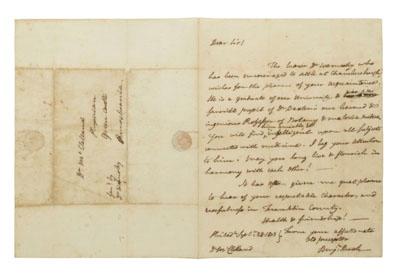 Dear Sir/
The bearer Dr
has been encouraged to settle at Chambersburgh
wishes for the pleasure of your acquaintance.
He is a graduate of our University &
favorite pupil of Dr Barton's our learned &
ingenious Professor of Botany & materia medica.
You will find intelligent upon all subjects
connected with medicine. I beg your attention
to him. May you long live & flourish in
harmony with each other!
It has often given me great pleasure
to hear of your respectable character, and
usefulness in Franklin County.
Health & friendship!
From your affectionate
old preceptor
Benjn Rush
Dr McClelland
Dr McClelland
Physician
Green Castle
Pennsylvania